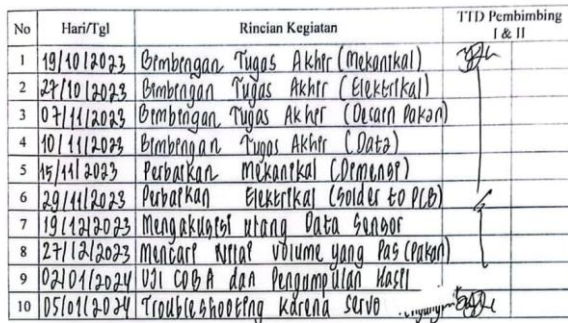 No Hari/Tgl Rincian Kegiatan TTD Pembimbing I & II
1 19/10/2023 Bimbingan Tugas Akhir (Mekanikal)
2 27/10/2023 Bimbingan Tugas Akhir (Elektrikal)
3 07/11/2023 Bimbingan Tugas Akhir (Desain Pakan)
4 10/11/2023 Bimbingan Tugas Akhir (Data)
5 15/11/2023 Perbaikan Mekanikal (Dimensi)
6 29/11/2023 Perbaikan Elektrikal (Solder to PCB)
7 19/12/2023 Mengakusisi utang Data Sensor
8 27/12/2023 Mencari Nilai volume yang Pas (Pakan)
9 02/01/2024 UJI COBA dan Pengumpulan Hasil
10 05/01/2024 Troubleshooting karena servo